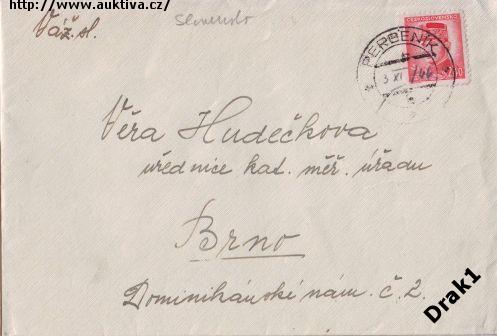 http://www.auktiva.cz/
Slovensko
Váž. sl.
ČESKOSLOVENSKO
PERBENÍK
3 XI /46
Věra Hudečkova
úřednice kat. měř. úřadu
Brno
Dominikánské nám. č. 2.
Drak1